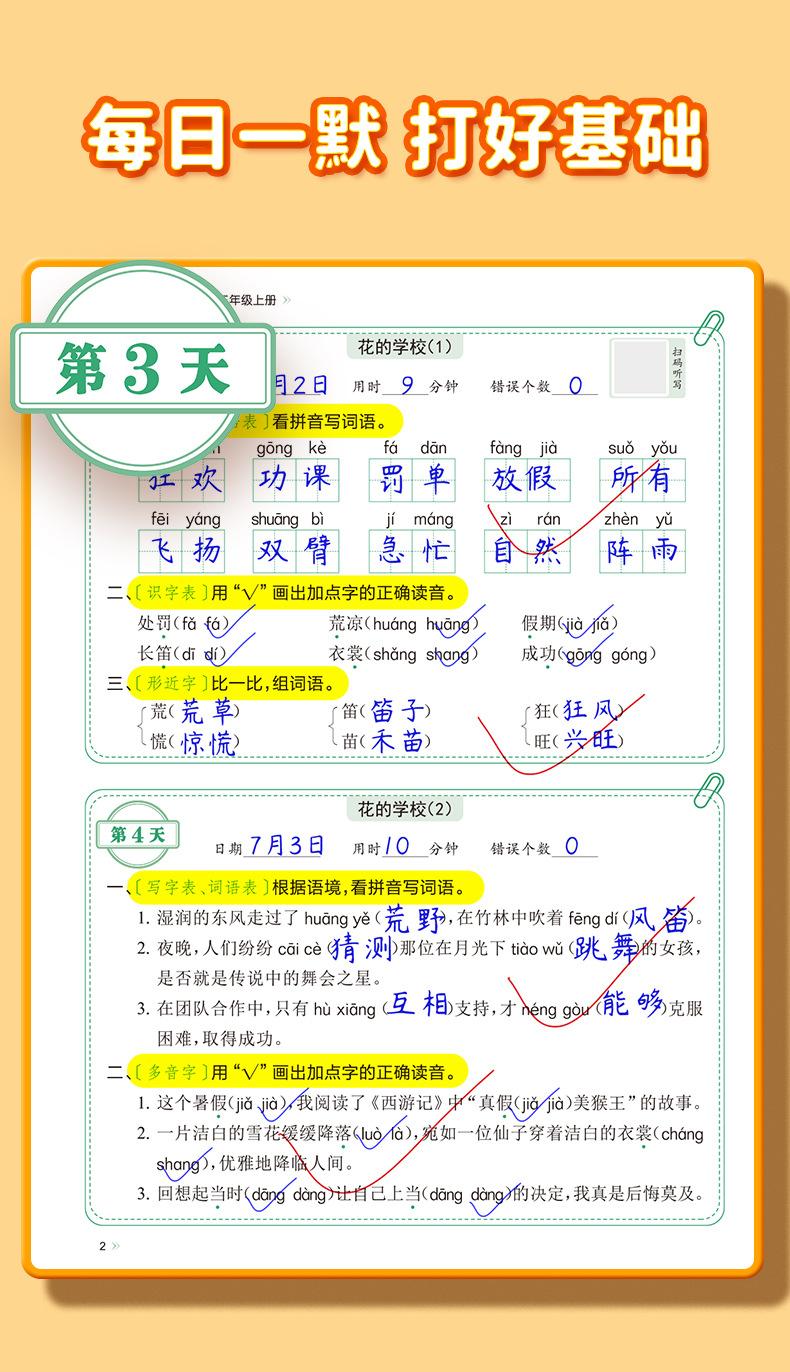 每日一默 打好基础
年级上册
第3天
花的学校(1)
月2日 用时 9 分钟 错误个数 0
扫码听写
表〕看拼音写词语。
gōng kè fá dān fàng jià suǒ yǒu
狂欢 功课 罚单 放假 所有
fēi yáng shuāng bì jí máng zì rán zhèn yǔ
飞扬 双臂 急忙 自然 阵雨
二、〔识字表〕用“√”画出加点字的正确读音。
处罚(fǎ fá) 荒凉(huáng huāng) 假期(jià jiǎ)
长笛(dī dí) 衣裳(shǎng shang) 成功(gōng góng)
三、〔形近字〕比一比,组词语。
荒(荒草) 笛(笛子) 狂(狂风)
慌(惊慌) 苗(禾苗) 旺(兴旺)
花的学校(2)
第4天
日期 7月3日 用时 10 分钟 错误个数 0
一、〔写字表、词语表〕根据语境,看拼音写词语。
1. 湿润的东风走过了 huāng yě(荒野),在竹林中吹着 fēng dí(风笛)。
2. 夜晚,人们纷纷 cāi cè(猜测)那位在月光下 tiào wǔ(跳舞)的女孩,
是否就是传说中的舞会之星。
3. 在团队合作中,只有 hù xiāng(互相)支持,才 néng gòu(能够)克服
困难,取得成功。
二、〔多音字〕用“√”画出加点字的正确读音。
1. 这个暑假(jiǎ jià),我阅读了《西游记》中“真假(jiǎ jià)美猴王”的故事。
2. 一片洁白的雪花缓缓降落(luò là),宛如一位仙子穿着洁白的衣裳(cháng
shang),优雅地降临人间。
3. 回想起当时(dāng dàng)让自己上当(dāng dàng)的决定,我真是后悔莫及。
2